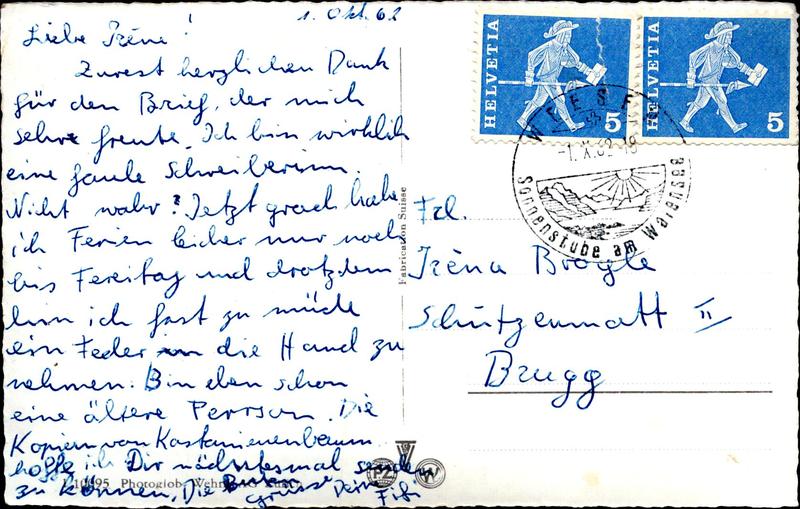 1. Okt. 62
Liebe Irène!
Zurest herzlichen Dank
für den Brief, der mich
sehr freute. Ich bin wirklich
eine faule Schreiberinn.
Nicht wahr? Jetzt grad habe
ich Ferien leider nur noch
bis Fereitag und drotzdem
bin ich fast zu müde
ein Feder in die Hand zu
nehmen. Bin eben schon
eine ältere Perrson. Die
Kopien von Kastanienenbaum
hoffe ich Dir nächstesmal senden
zu können. Die
grüsse Deine Fifi
HELVETIA 5
HELVETIA 5
WEESEN
-1.X.62-18
Sonnenstube am Walensee
Frl.
Irèna Brogle
Schützenmatt II
Brugg
Fabrication Suisse
Photoglob-Wehrli AG Zürich
PZ W